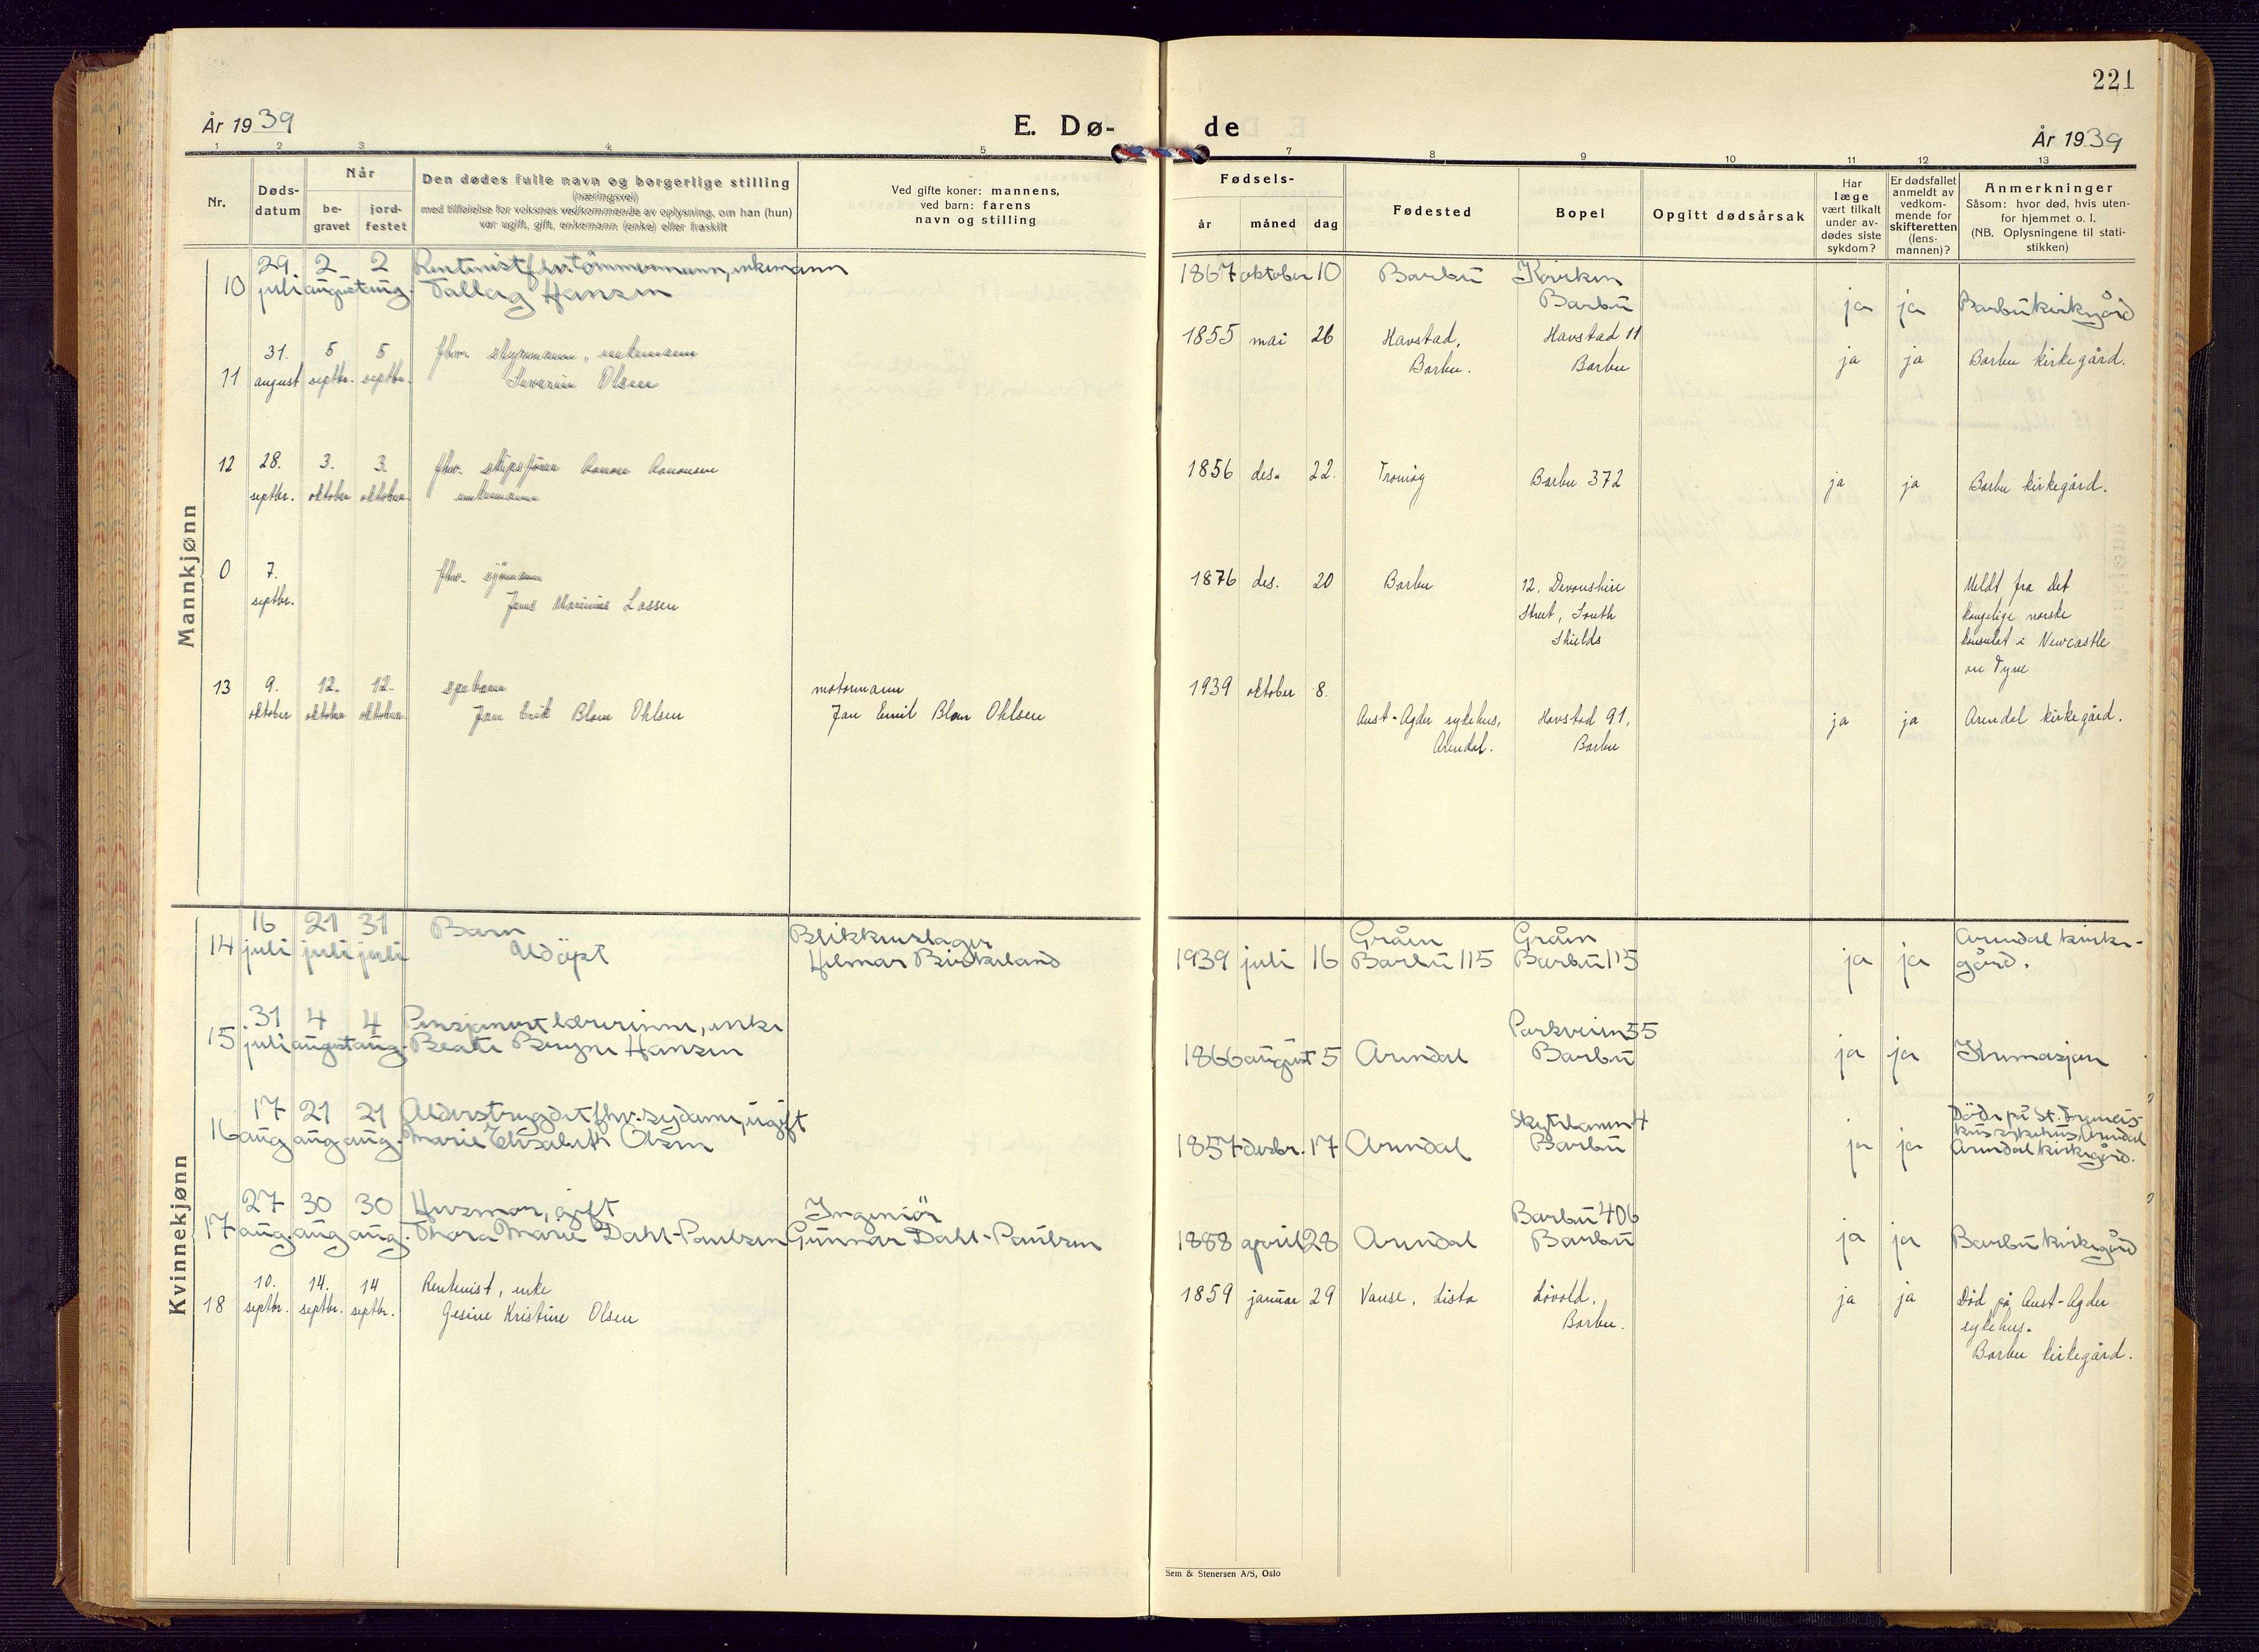 221
År 1939
E. Dø-
de
År 1939
1 2 3 4 5 7 8 9 10 11 12 13
Nr.
Døds-
datum
Når
be-
gravet
jord-
festet
Den dødes fulle navn og borgerlige stilling
(næringsvei)
med tilføielse for voksnes vedkommende av oplysning, om han (hun)
var ugift, gift, enkemann (enke) eller fraskilt
Ved gifte koner: mannens,
ved barn: farens
navn og stilling
Fødsels-
år måned dag
Fødested
Bopel
Opgitt dødsårsak
Har
læge
vært tilkalt
under av-
dødes siste
sykdom?
Er dødsfallet
anmeldt av
vedkom-
mende for
skifteretten
(lens-
mannen)?
Anmerkninger
Såsom: hvor død, hvis uten-
for hjemmet o. l.
(NB. Oplysningene til stati-
stikken)
Mannkjønn
29 2 2 Rentenist fhv. tömmermann, enkemann 1867 oktober 10 Barbu
10 juli august aug. Tallag Hansen Barbu ja ja Barbu kirkegård
31. 5 5 fhv. styrmann, enkemann 1855 mai 26 Havstad, Havstad 11
11 august septbr. septbr. Severin Olsen Barbu. Barbu ja ja Barbu kirkegård.
12 28. 3. 3. fhv. skipsfører Aanon Aanonsen 1856 des. 22. Tromøy Barbu 372 ja ja Barbu kirkegård.
septbr. oktober oktober enkemann
0 7. fhv. sjömann 1876 des. 20 Barbu 12, Devonshire Meldt fra det
septbr. Jens Marinius Lassen Street, South kongelige norske
Shields konsulat i Newcastle
on Tyne
13 9. 12. 12. spebarn motormann 1939 oktober 8.
oktober oktober oktober Jan Erik Blom Ohlsen Jan Emil Blom Ohlsen Aust-Agder sykehus, Havstad 91, ja ja Arendal kirkegård.
Arendal. Barbu
Kvinnekjønn
16 21 31 Barn Blikkenslager Gråen Gråen Arendal kirke-
14 juli juli juli Udöpt Hilmar Birkeland 1939 juli 16 Barbu 115 Barbu 115 ja ja gård.
31 4 4 Pensjonert lærerinne, enke Parkveien 55
15 juli august aug. Beate Bruyn Hansen 1866 august 5 Arendal Barbu ja ja Kremasjon
17 21 21 Alderstrygdet fhv. sydame, ugift Døde på St. Francis-
16 aug aug aug. Marie Elisabeth Olsen 1857 desbr. 17 Arendal Barbu ja ja kus sykehus, Arendal
Arendal kirkegård.
27 30 30 Husmor, gift Ingeniör Barbu 406
17 aug. aug aug. Thora Marie Dahl-Paulsen Gunnar Dahl-Paulsen 1888 april 28 Arendal Barbu ja ja Barbu kirkegård
10. 14. 14 Rentenist, enke 1859 januar 29 Vanse, Lista Løvold, ja ja Død på Aust-Agder
18 septbr. septbr. septbr. Gesine Kristine Olsen Barbu. sykehus.
Barbu kirkegård.
Sem & Stenersen A/S, Oslo